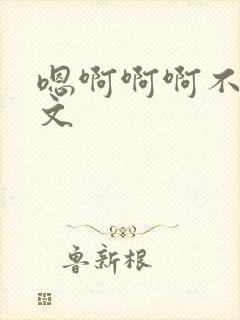 嗯啊啊啊不
文
鲁新根